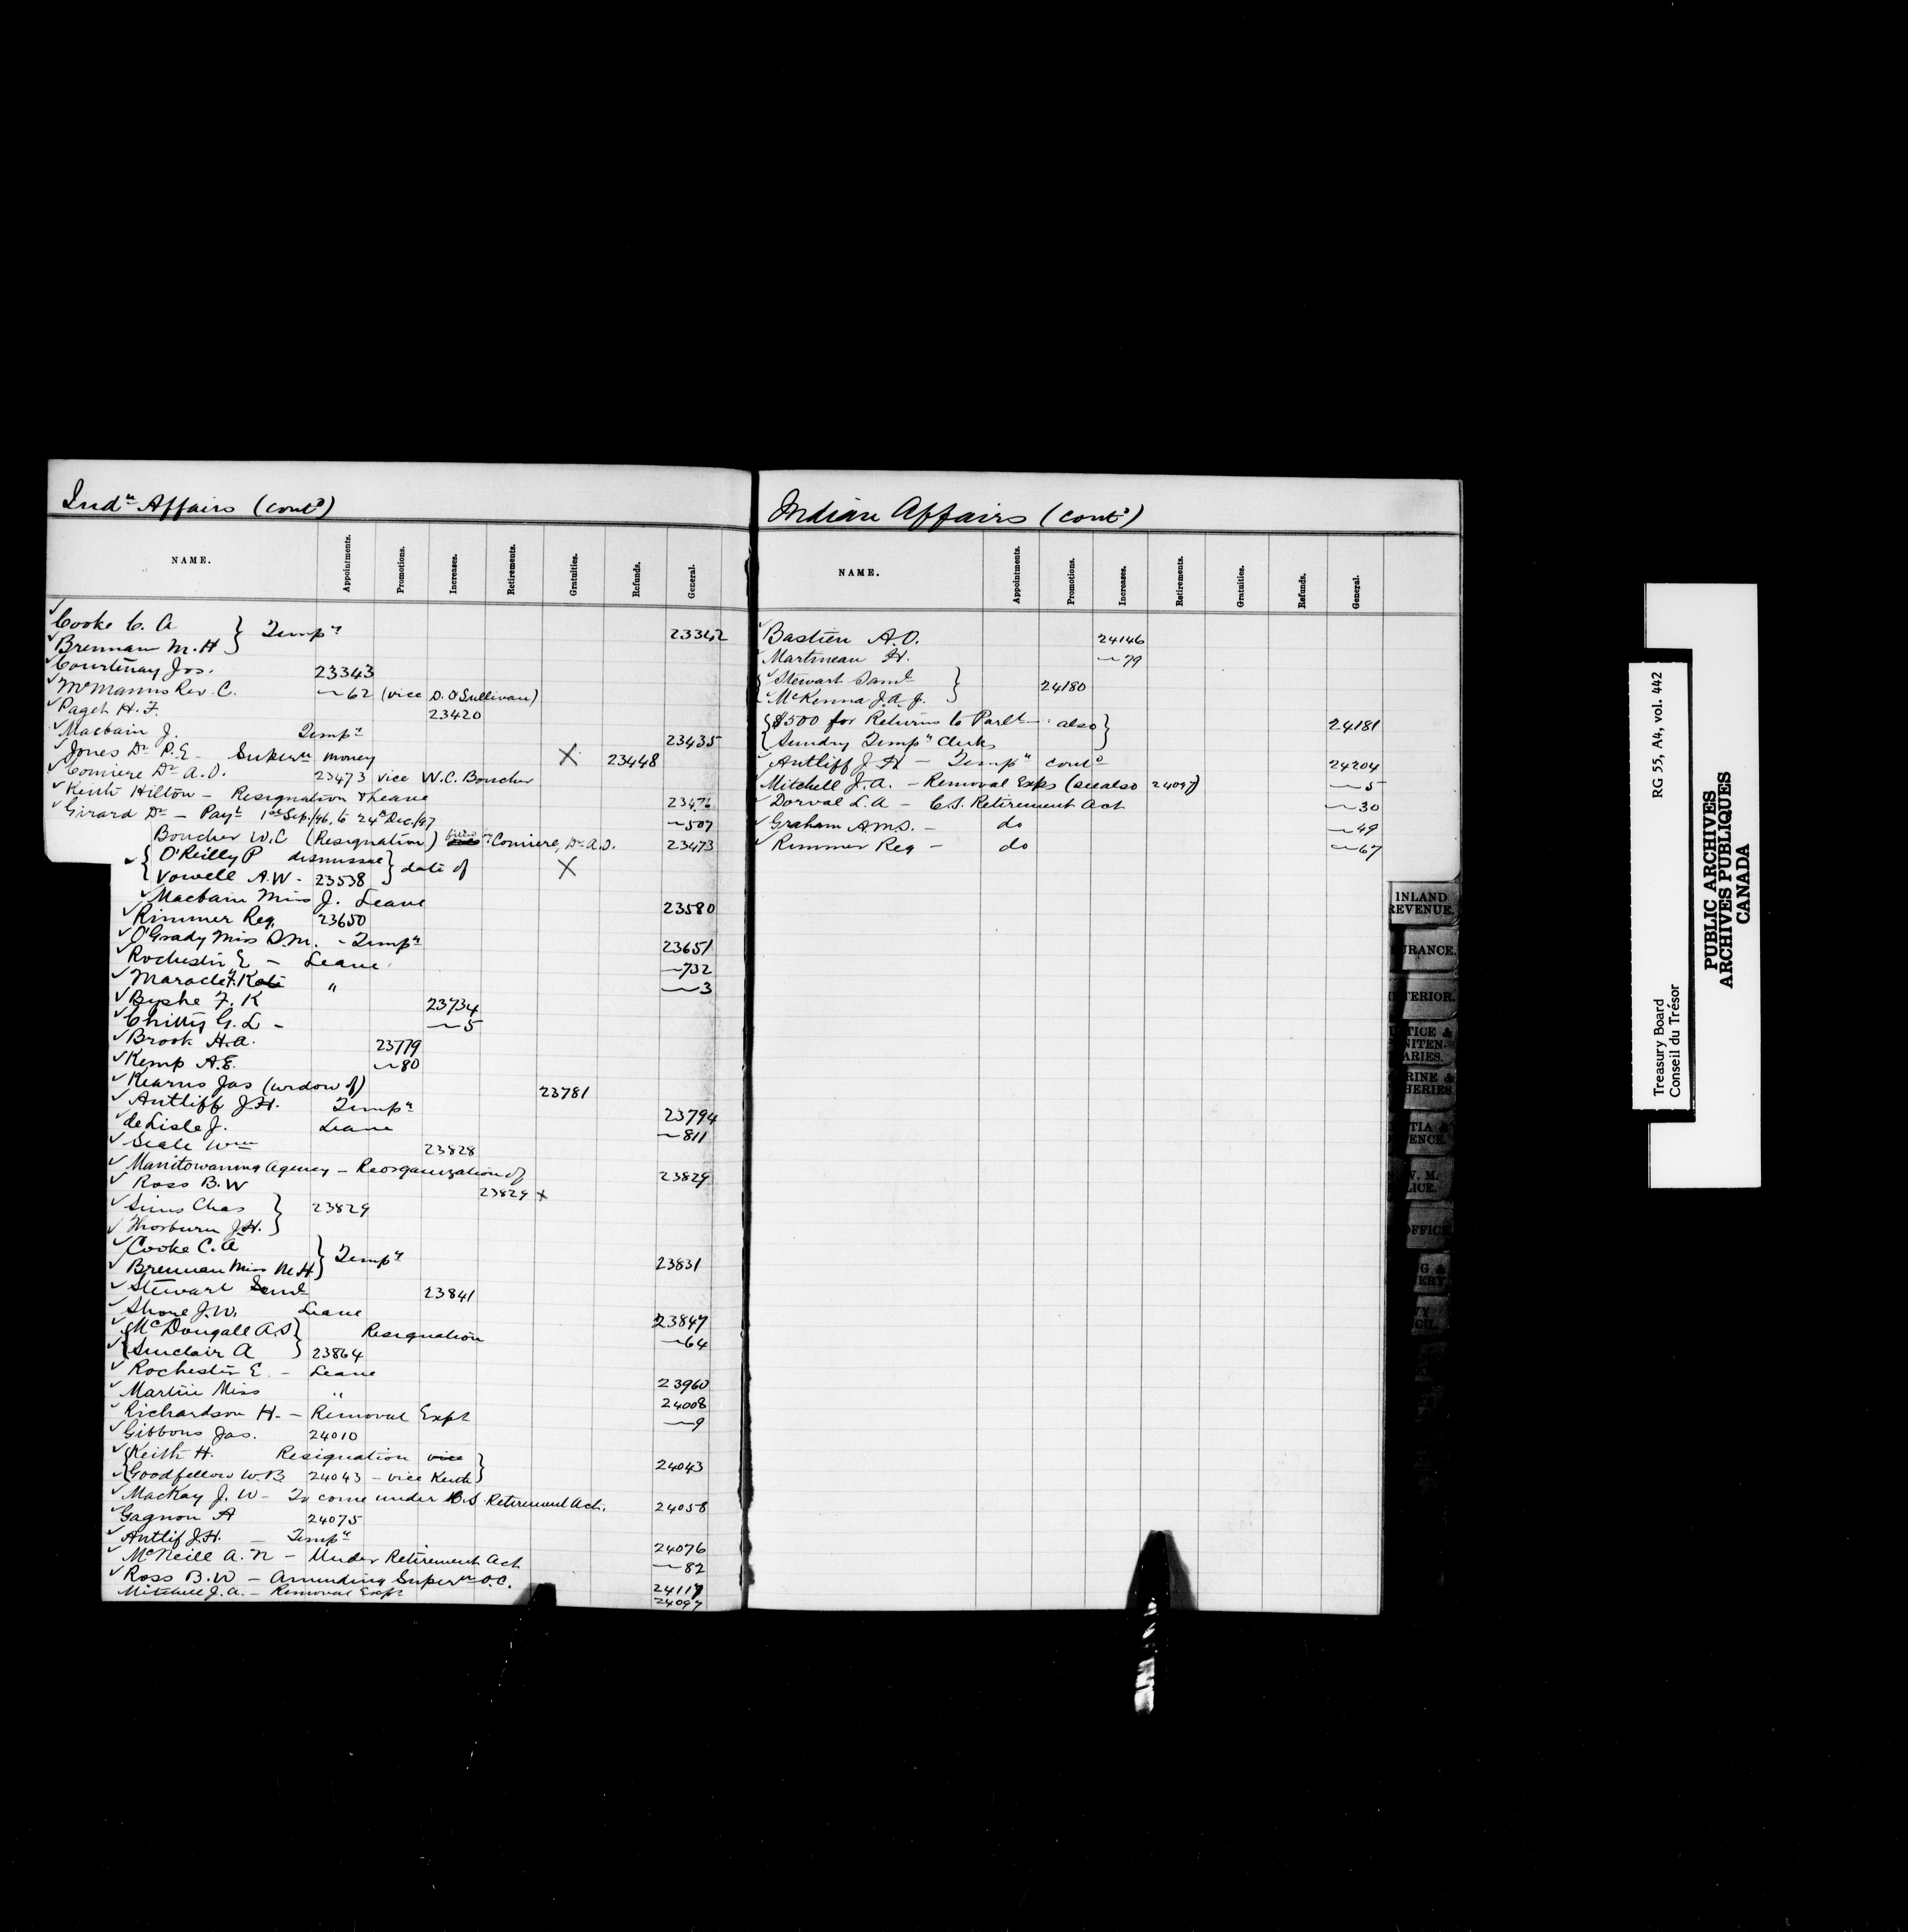 Indn Affairs (contd)
NAME. Appointments. Promotions. Increases. Retirements. Gratuities. Refunds. General.
Cooke C. A } Tempy 23342
Brennan M. H
Courtenay Jos. 23343
McManus Rev. C. 〃62 (vice D. O'Sullivan)
Paget H. F. 23420
Macbain J. Tempy 23435
Jones Dr P. E. Superan money X 23448
Comiere Dr A. O. 23473 vice W. C. Boucher
Keith Hilton - Resignation & Leave 23476
Girard Dr - Payt 1st Sep./96, to 24th Dec./97 〃507
Boucher W. C (Resignation) Comiere, Dr A. O. 23473
{ O'Reilly P dismissal } date of X
{ Vowell A. W - 23538
Macbain Miss J. Leave 23580
Rimmer Reg. 23650
O'Grady Miss D. M. - Tempy 23651
Rochester E - Leave 〃732
Maracle F. Kate " 〃3
Byshe F. K 23734
Chitty G. L - 〃5
Brook H. A. 23779
Kemp A. E. 〃80
Kearns Jas (widow of) 23781
Antliff J. H. Tempy 23794
de Lisle J. Leave 〃811
Seale Wm 23828
Manitowaning Agency - Reorganization of 23829
Ross B. W 23829 x
Sims Chas } 23829
Thorburn J. H.
Cooke C. A } Tempy 23831
Brennan Miss M. H
Stewart Saml 23841
Shore J. W. Leave 23847
{ McDougall A. S } Resignation 〃64
{ Sinclair A } 23864
Rochester E. - Leave 23960
Martin Miss " 24008
Richardson H. - Removal Exps 〃9
Gibbons Jas. 24010
{ Keith H. Resignation vice } 24043
{ Goodfellow W. B 24043 - vice Keith }
MacKay J. W - To come under C. S Retirement Act. 24058
Gagnon A 24075
Antlif J. H. - Tempy 24076
McNeill A. N - Under Retirement Act 〃82
Ross B. W - Amending Superan O. C. 24117
Mitchell J. A. - Removal Exps 24097
Indian Affairs (contd)
NAME. Appointments. Promotions. Increases. Retirements. Gratuities. Refunds. General.
Bastien A. O. 24146
Martineau H. 〃79
{ Stewart Saml } 24180
{ McKenna J. A. J.
{ $500 for Returns to Parlt - also } 24181
{ Sundry Tempy Clerks
Antliff J. H - Tempy contd 24204
Mitchell J. A. - Removal Exps (see also 24097) 〃5
Dorval L. A - C. S. Retirement Act 〃30
Graham A. M. S. - do 〃49
Rimmer Reg - do 〃67
INLAND
REVENUE.
URANCE.
TERIOR.
TICE &
NITEN-
ARIES.
RINE &
HERIES
TIA &
ENCE.
W. M.
LICE.
OFFICE
RG 55, A4, vol. 442
Treasury Board
Conseil du Trésor
PUBLIC ARCHIVES
ARCHIVES PUBLIQUES
CANADA